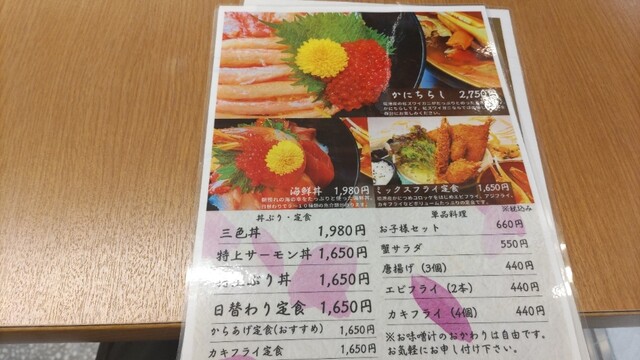 かにちらし 2,750円
海鮮丼 1,980円
ミックスフライ定食 1,650円
丼ぶり・定食
三色丼 1,980円
特上サーモン丼 1,650円
ぶり丼 1,650円
日替わり定食 1,650円
からあげ定食(おすすめ) 1,650円
カキフライ定食 1,650円
※税込み
単品料理
お子様セット 660円
蟹サラダ 550円
唐揚げ(3個) 440円
エビフライ(2本) 440円
カキフライ(4個) 440円
※お味噌汁のおかわりは自由です。
お気軽にお申し付け下さい。